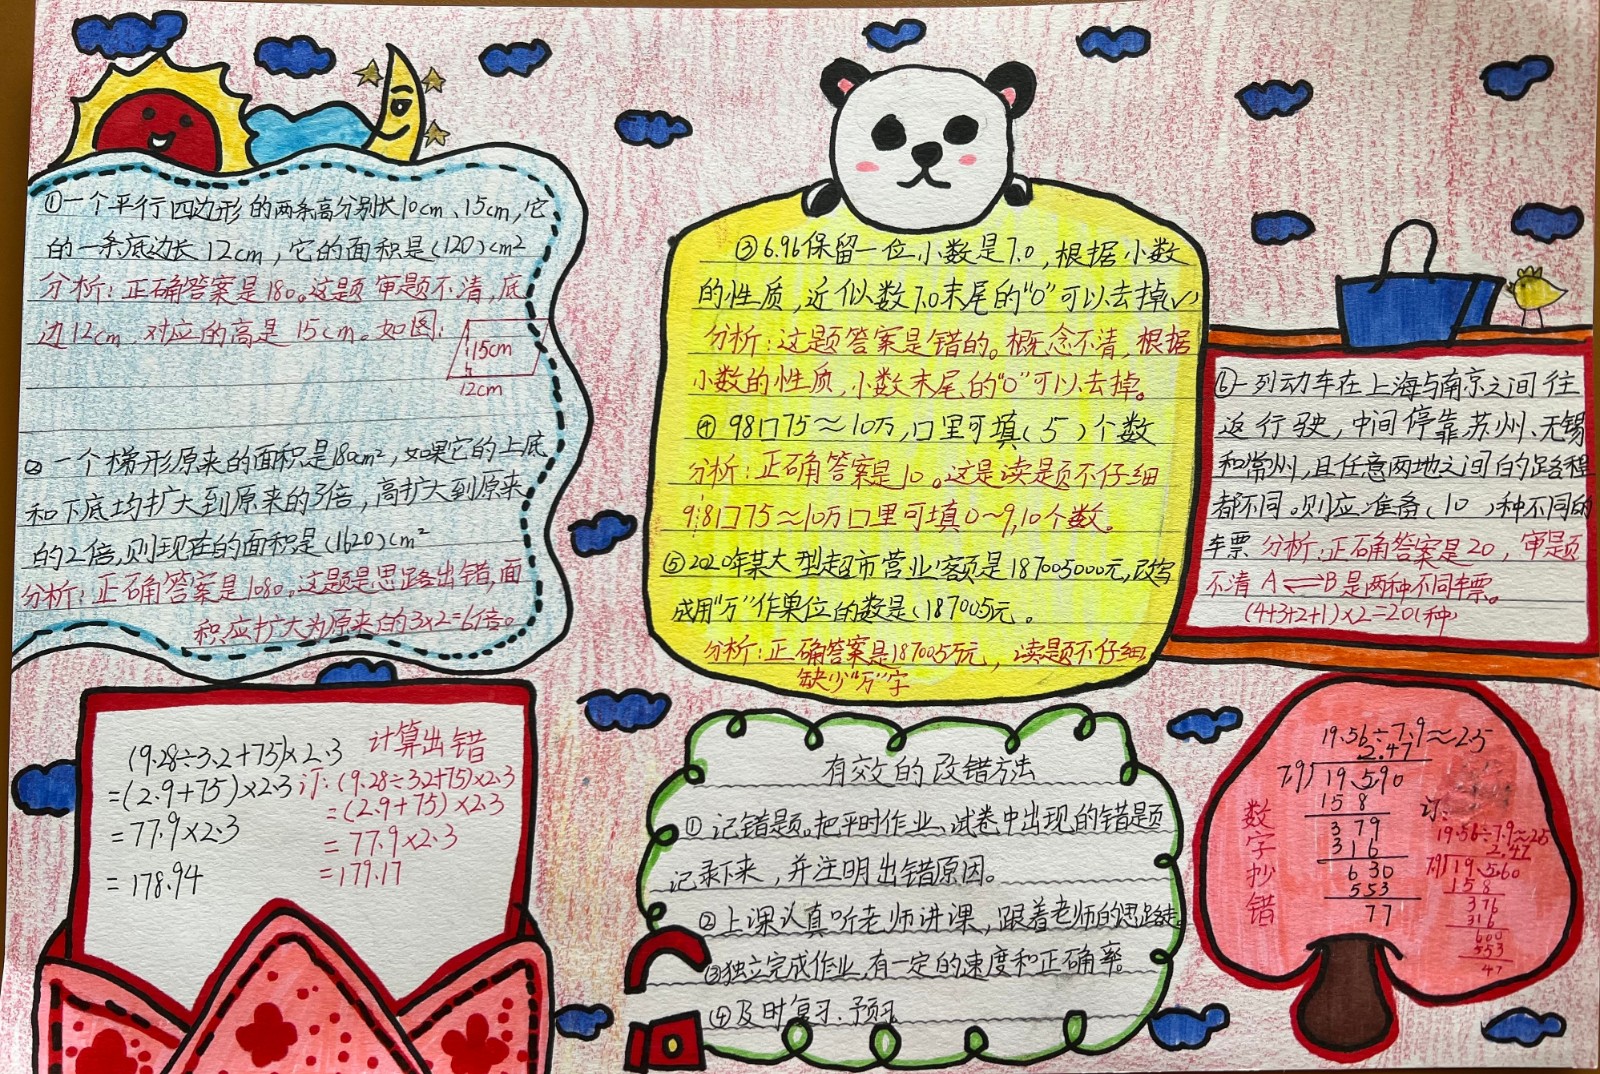 ①一个平行四边形的两条高分别长10cm、15cm,它
的一条底边长12cm,它的面积是(120)cm²
分析:正确答案是180。这题审题不清,底
边12cm,对应的高是15cm。如图:
15cm
12cm
②一个梯形原来的面积是180cm²,如果它的上底
和下底均扩大到原来的3倍,高扩大到原来
的2倍,则现在的面积是(1620)cm²
分析:正确答案是1080。这题是思路出错,面
积应扩大为原来的3×2=6倍。
③6.96保留一位小数是7.0,根据小数
的性质,近似数7.0末尾的“0”可以去掉√
分析:这题答案是错的。概念不清,根据
小数的性质,小数末尾的“0”可以去掉。
④98口75≈10万,口里可填(5)个数
分析:正确答案是10。这是读题不仔细
9¦8口75≈10万口里可填0~9,10个数。
⑤2020年某大型超市营业额是187005000元,改写
成用“万”作单位的数是(187005元。
分析:正确答案是187005万元,读题不仔细
缺少“万”字
⑥一列动车在上海与南京之间往
返行驶,中间停靠苏州、无锡
和常州,且任意两地之间的路程
都不同。则应准备(10)种不同的
车票 分析:正确答案是20,审题
不清 A⇌B是两种不同车票。
(4+3+2+1)×2=20(种)
计算出错
(9.28÷3.2+75)×2.3
=(2.9+75)×2.3
=77.9×2.3
=178.94
订:(9.28÷3.2+75)×2.3
=(2.9+75)×2.3
=77.9×2.3
=179.17
有效的改错方法
①记错题。把平时作业、试卷中出现的错题
记录下来,并注明出错原因。
②上课认真听老师讲课,跟着老师的思路走。
③独立完成作业,有一定的速度和正确率。
④及时复习、预习
数字抄错
19.56÷7.9≈2.5
2.47
7.9)19.5.90
158
379
316
630
553
77
订:
19.56÷7.9≈2.5
2.47
7.9)19.5.60
158
376
316
600
553
47